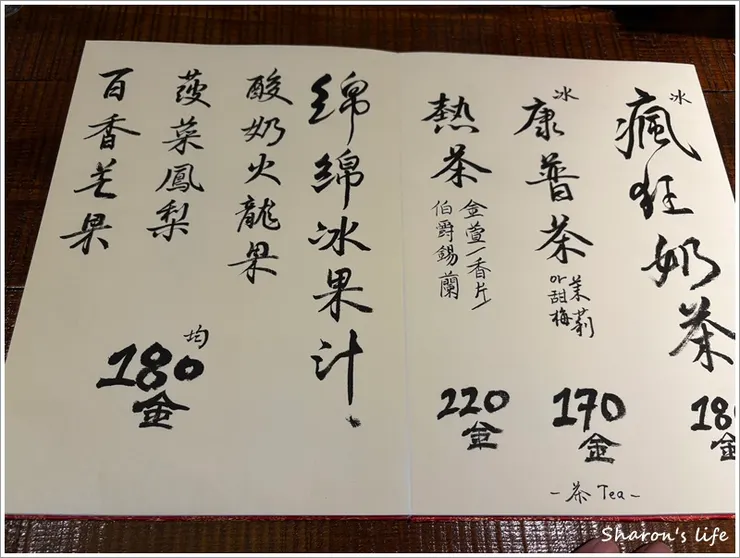 冰
瘋狂奶茶
180
金
冰
康普茶
茉莉
or甜梅
170
金
熱茶
金萱/香片/
伯爵錫蘭
220
金
-茶 Tea-
綿綿冰果汁、
酸奶火龍果
菠菜鳳梨
百香芒果
均
180
金
Sharon's life